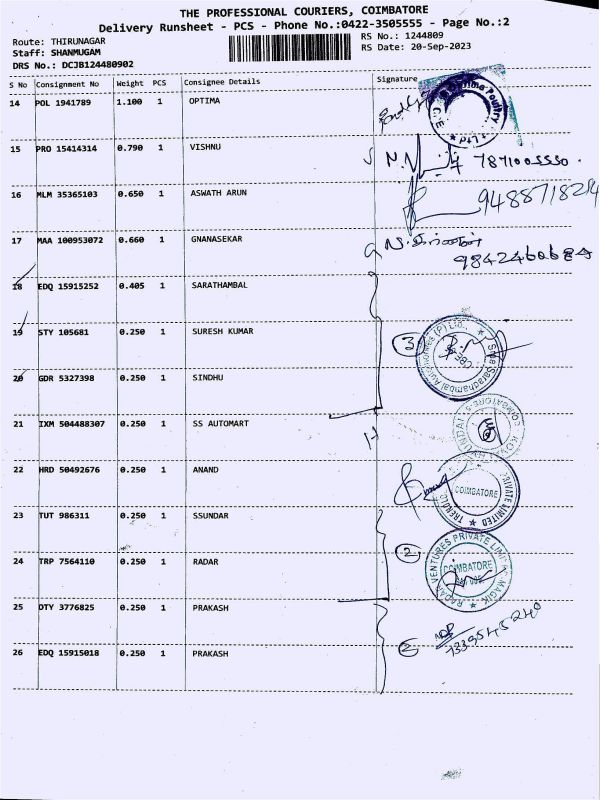 THE PROFESSIONAL COURIERS, COIMBATORE
Delivery Runsheet - PCS - Phone No.:0422-3505555 - Page No.:2
Route: THIRUNAGAR
Staff: SHANMUGAM
DRS No.: DCJB124480902
RS No.: 1244809
RS Date: 20-Sep-2023
S No Consignment No Weight PCS Consignee Details Signature
14 POL 1941789 1.100 1 OPTIMA
Poultry
15 PRO 15414314 0.790 1 VISHNU
16 MLM 35365103 0.650 1 ASWATH ARUN
17 MAA 100953072 0.660 1 GNANASEKAR
9842460684
18 EDQ 15915252 0.405 1 SARATHAMBAL
19 STY 105681 0.250 1 SURESH KUMAR
3
Siva Sarathambal Automobiles (P) Ltd.,
CBE
20 GDR 5327398 0.250 1 SINDHU
21 IXM 504488307 0.250 1 SS AUTOMART
22 HRD 50492676 0.250 1 ANAND
PRIVATE LIMITED
COIMBATORE
23 TUT 986311 0.250 1 SSUNDAR
24 TRP 7564110 0.250 1 RADAR
2
RADAR VENTURES PRIVATE LIMITED
COIMBATORE
25 DTY 3776825 0.250 1 PRAKASH
26 EDQ 15915018 0.250 1 PRAKASH
2